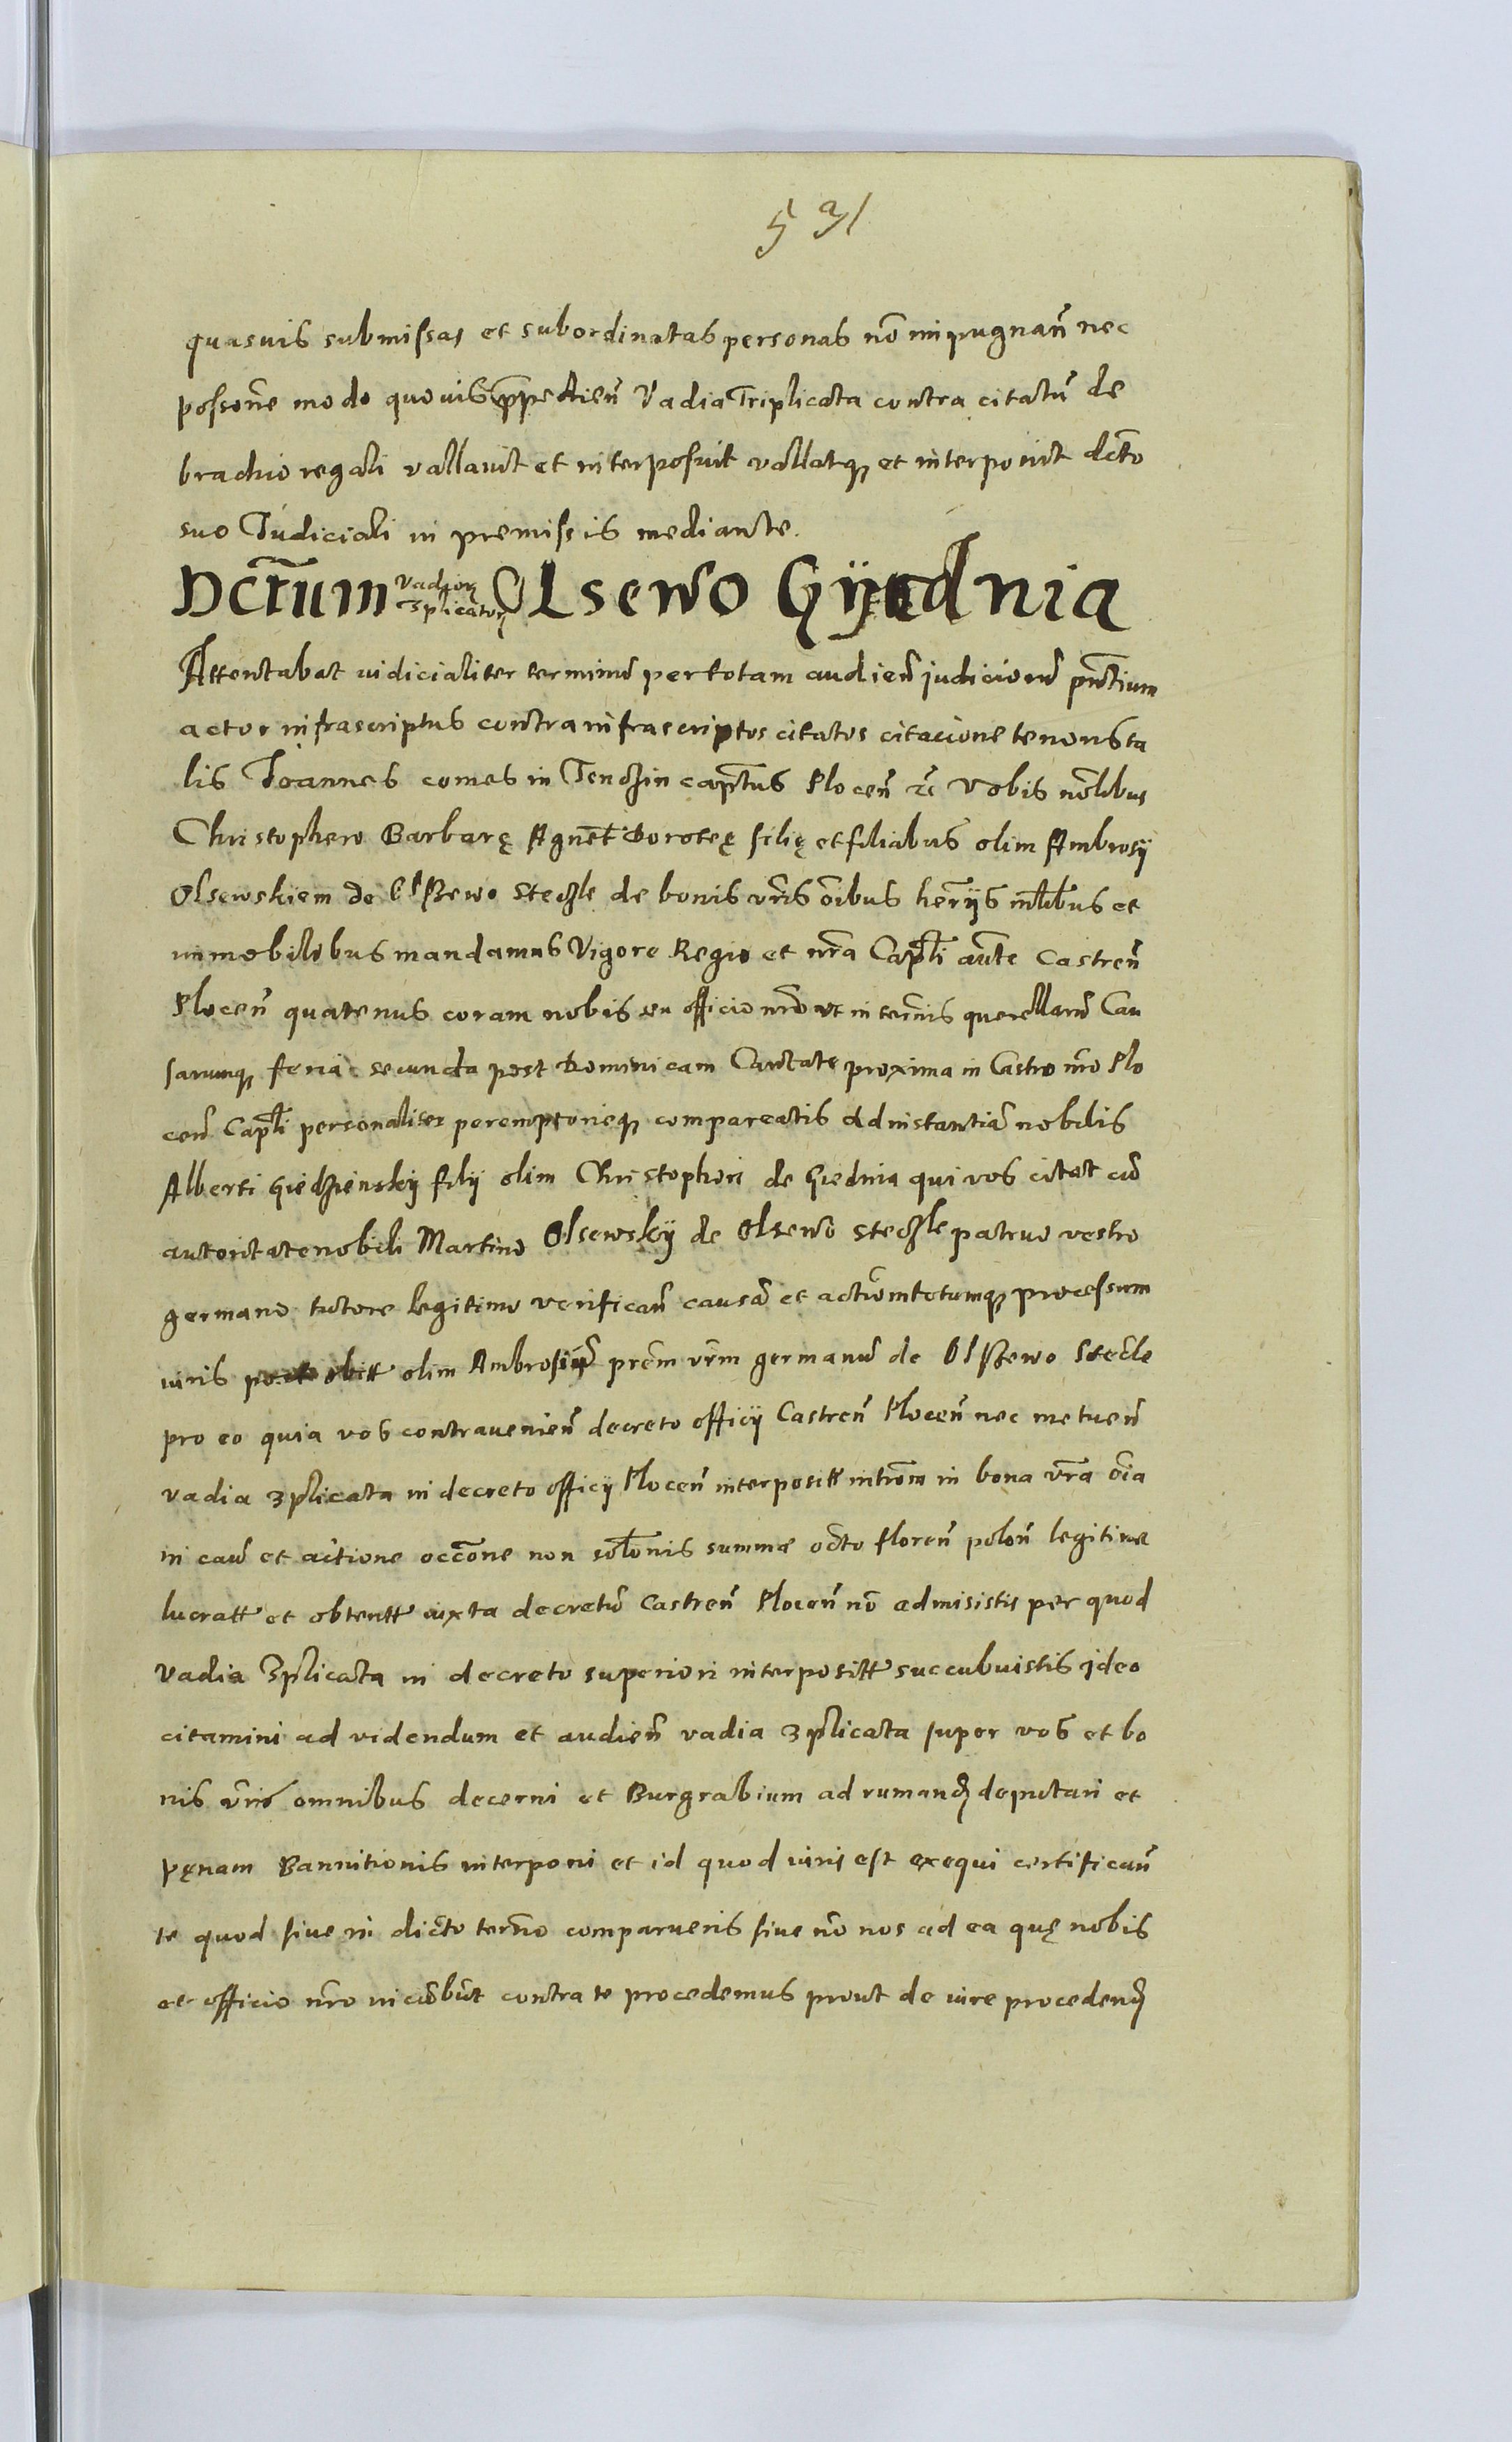 quasuis submissas et subordinatas personas nõ impugnañ nec
modo quouis Vadia Triplicata contra citatũ de
brachio regali vallauit et interposuit vallatqȝ et interponit dcto
suo Judiciali in premissis mediante.
Dctum Vador 3plicator Olsewo Gÿednia
Attentabat iudicialiter terminũ per totam audieñ judiciorũ pñtium
actor infrascriptus contra infrascriptos citatos citacione tenoris ta
lis Joannes comes in Tenczin captus Ploceñ Vobis nõlibus
Christophero Barbarę Agnet Doroteę filię et filiabus olim Ambrosÿ
Olsewskiem de Olszewo Steczle de bonis vris oibus herijs mlibus et
immobilibus mandamus Vigore Regio et nra Capli aute Castreñ
Ploceñ quatenus coram nobis seu officio nro ut in termis querellarũ Cau
sarumqȝ feria secunda post Dominicam Cantate proxima in Castro nro Plo
ceñ Capli personaliter peremptorieqȝ compareatis Ad instantiã nobilis
Alberti Giedzienskÿ filÿ olim Christopheri de Giednia qui vos citat cũ
autoritate nobili Martino Olsewskÿ de Olsewo Steczle patruo vestro
germano tutore legitimo verificañ causã et actiom totumqȝ processum
iuris olim Ambrosium prem vrm germanũ de Olszewo Stecle
pro eo quia vos contraueniẽn decreto officÿ Castreñ Ploceñ nec metueñ
vadia 3plicata in decreto officÿ Ploceñ interposit introm in bona vra oia
in cau et actione occõne non solonis summæ octo floreñ poloñ legitime
lucratt et obtentt iuxta decretũ Castreñ Ploceñ nõ admisistis per quod
Vadia 3plicata in decreto superiori interpositt succubuistis ideo
citamini ad videndum et audieñ vadia 3plicata super vos et bo
nis vris omnibus decerni et Burgrabium ad rumandȝ deputari et
pęnam Bannitionis interponi et id quod iuris est exequi certificañ
te quod siue in dicto termo comparueris siue nõ nos ad ea quę nobis
et officio nro incũbũt contra te procedemus prout de iure procedendȝ